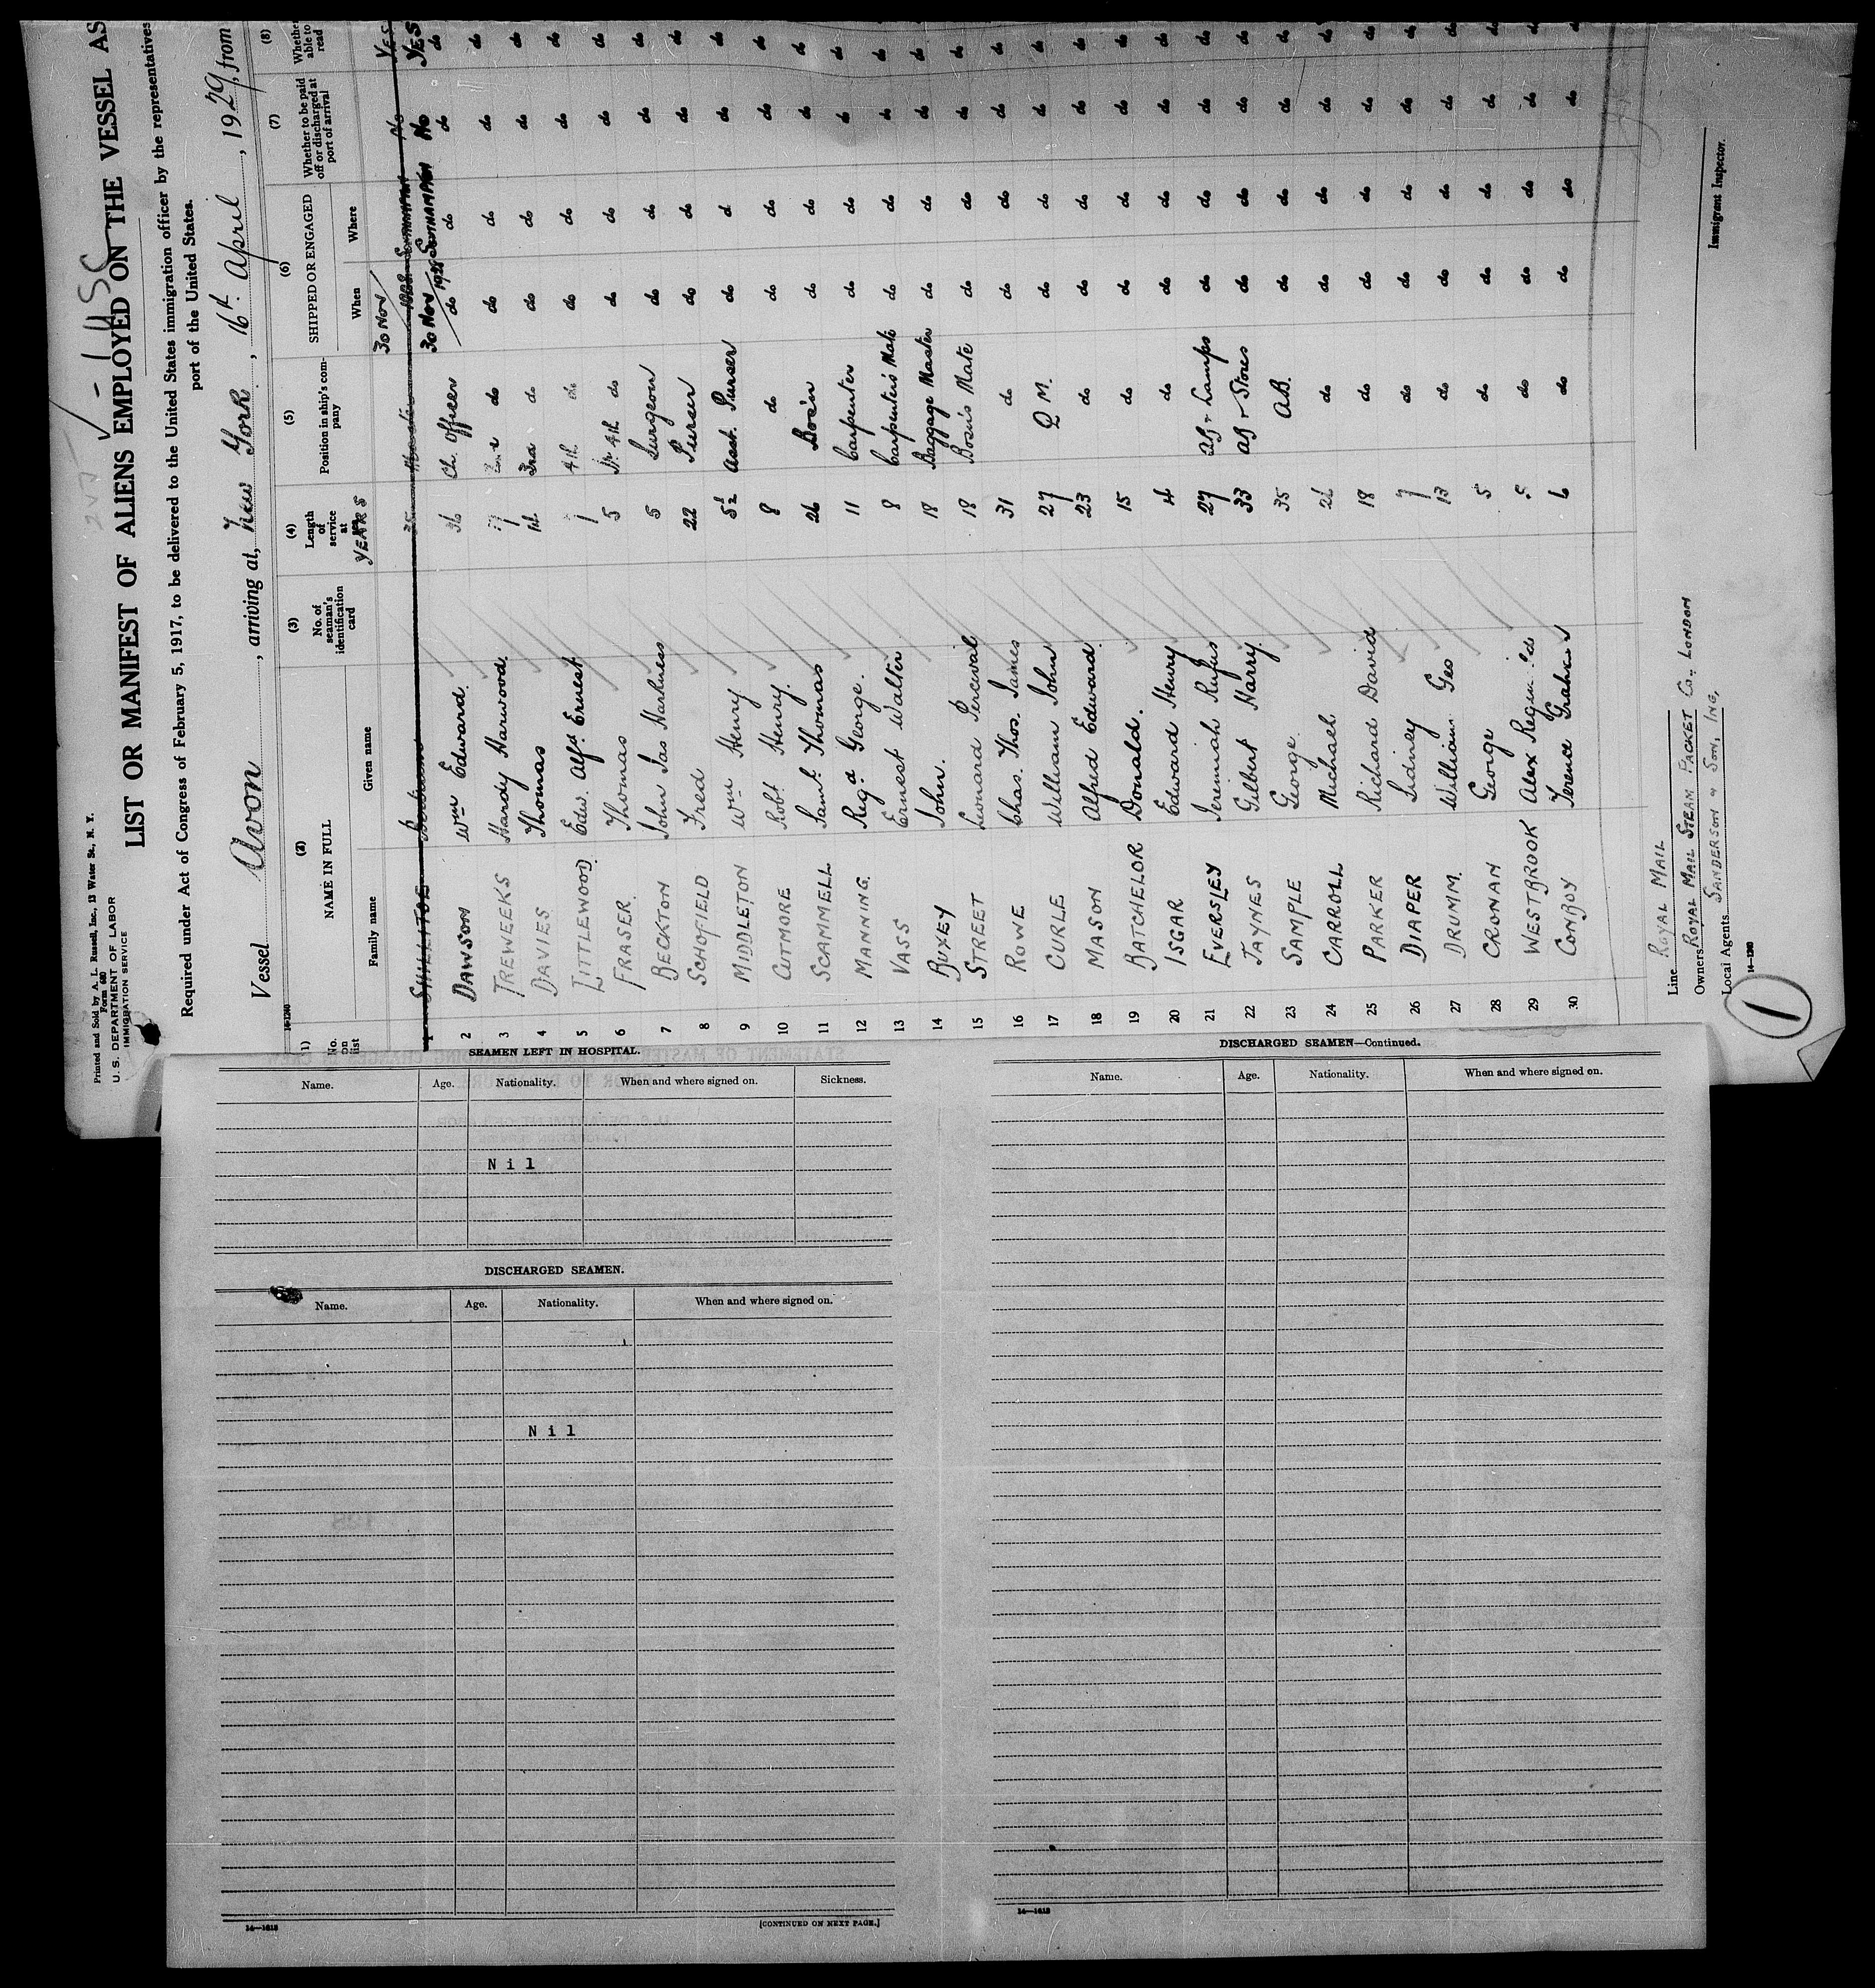 Printed and Sold by A. L. Russell, Inc., 13 Water St., N. Y.
Form 680
U. S. DEPARTMENT OF LABOR
IMMIGRATION SERVICE
LIST OR MANIFEST OF ALIENS EMPLOYED ON THE VESSEL AS
Required under Act of Congress of February 5, 1917, to be delivered to the United States immigration officer by the representatives
port of the United States.
Vessel Avon, arriving at, New York, 16th April, 1929, from
14-1240
(1) No. on list (2) NAME IN FULL Family name Given name (3) No. of seaman's identification card (4) Length of service at YEARS (5) Position in ship's company (6) SHIPPED OR ENGAGED When Where (7) Whether to be paid off or discharged at port of arrival (8) Whether able to read
1 SHILLITOE 35 30 Nov 1928 SOUTHAMPTON No YES
30 Nov 1928 SOUTHAMPTON No YES
2 DAWSON Wm Edward 36 Ch. Officer do do do do
3 TREWEEKS Hardy Harwood do do do do do
4 DAVIES Thomas 14 3rd do do do do do
5 LITTLEWOOD Edw. Alfd Ernest 1 4th do do do do do
6 FRASER Thomas 5 Jr. 4th do do do do do
7 BECKTON John Jas Harkness 5 Surgeon do do do do
8 SCHOFIELD Fred 22 Purser do do do do
9 MIDDLETON Wm Henry 5½ Asst. Purser do d do do
10 CUTMORE Robt Henry. 8 do do do do do
11 SCAMMELL Saml Thomas 26 Bos'n do do do do
12 MANNING. Regd George. 11 Carpenter do do do do
13 VASS Ernest Walter 8 Carpenter's Mate do do do do
14 BUXEY John. 18 Baggage Master do do do do
15 STREET Leonard Percival 18 Bosn's Mate do do do do
16 ROWE Chas. Thos. James 31 do do do do do
17 CURLE William John 27 Q M. do do do do
18 MASON Alfred Edward 23 do do do do do
19 BATCHELOR Donald. 15 do do do do do
20 ISGAR Edward Henry 4 do do do do do
21 EVERSLEY Jeremiah Rufus 27 AB & Lamps do do do do
22 JAYNES Gilbert Harry 33 AB & Stores do do do do
23 SAMPLE George 35 AB. do do do do
24 CARROLL Michael do do do do do
25 PARKER Richard David 18 do do do do do
26 DIAPER Sidney 7 do do do do do
27 DRUMM. William Geo 13 do do do do do
28 CRONAN George 5 do do do do do
29 WESTBROOK Alex 5 do do do do do
30 CONROY Terence Graham 6 do do do do do
Line ROYAL MAIL
Owners ROYAL MAIL STEAM PACKET Co., LONDON
Local Agents SANDERSON & SON, INC,
Immigrant Inspector.
14-1240
1
SEAMEN LEFT IN HOSPITAL.
Name. Age. Nationality. When and where signed on. Sickness.
Nil
DISCHARGED SEAMEN.
Name. Age. Nationality. When and where signed on.
Nil
14—1618
[CONTINUED ON NEXT PAGE.]
DISCHARGED SEAMEN—Continued.
Name. Age. Nationality. When and where signed on.
14—1618